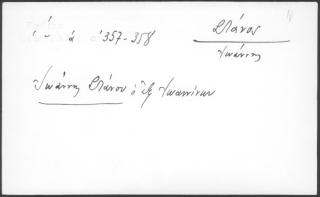 357-358
Σπάνος
Ἰωάννης
Ἰωάννης Σπάνου ὁ ἐξ Ἰωαννίνων